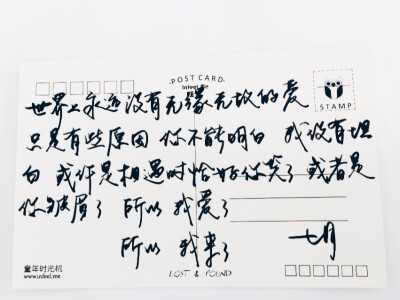 POST CARD
Infeel.Me
STAMP
世界上永远没有无缘无故的爱
只是有些原因 你不能明白 我没有坦
白 或许是相遇时恰好你笑了 或者是
你皱眉了 所以 我爱了
所以 我来了 七月
童年时光机
www.infeel.me
LOST & FOUND